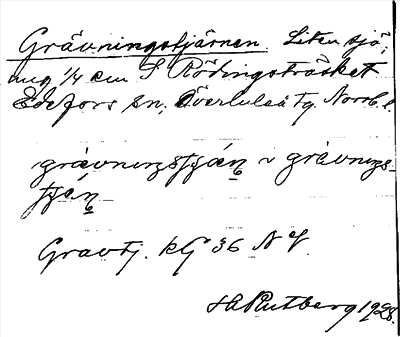 Grävningstjärnen. Liten sjö,
ung 1/4 km S Rödingsträsket
Edefors sn, Överluleå tg Norrb. l.
grævningstjæn ~ grævnings-
tjæn
Gravtj. kG 36 NV
H Rutberg 1928.